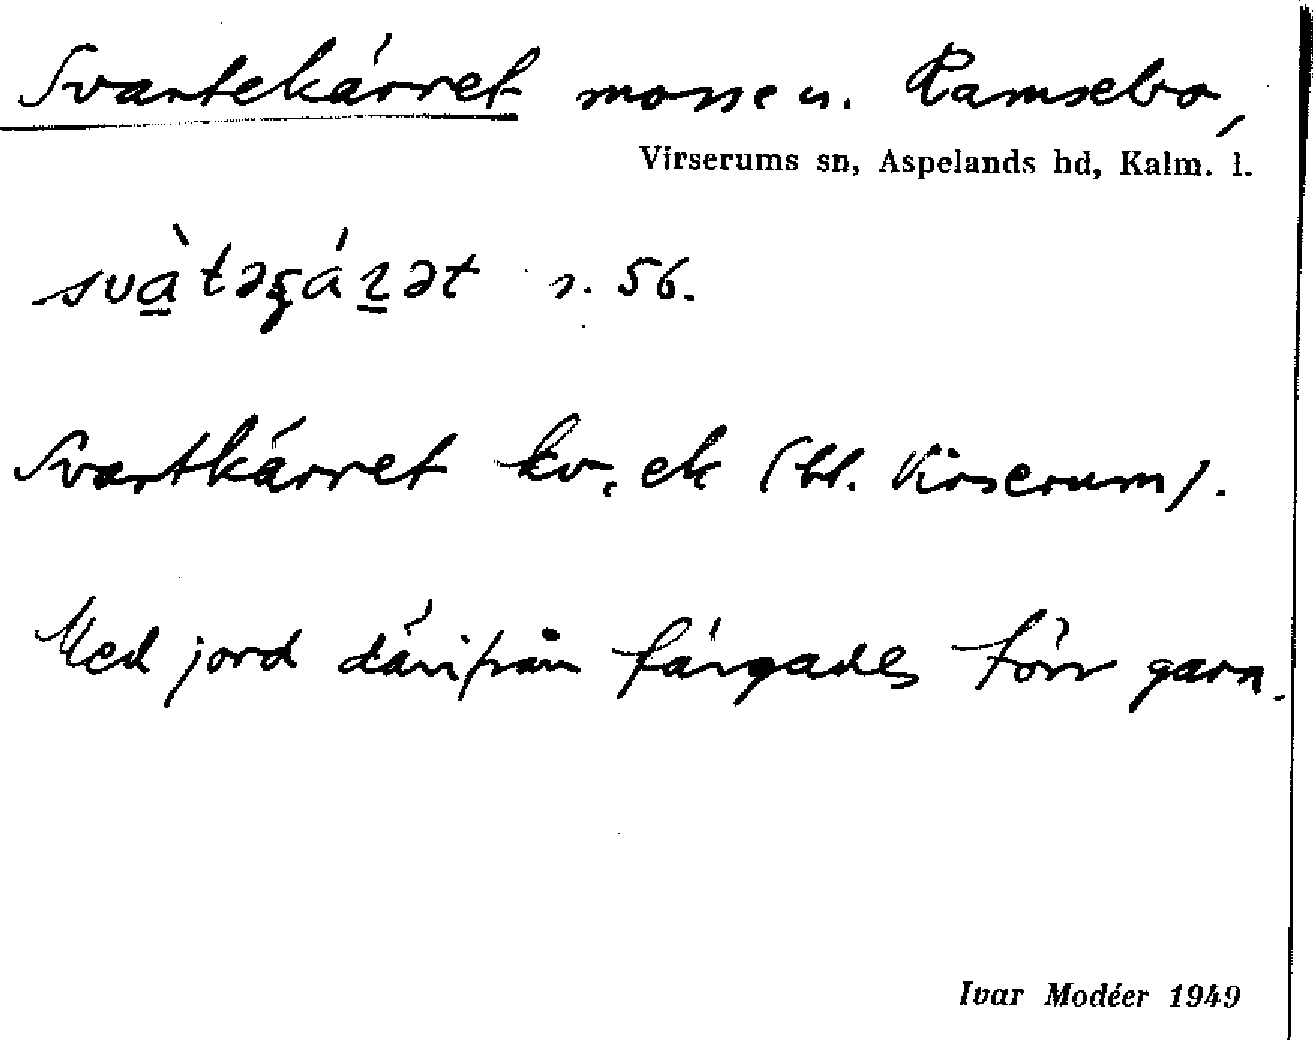 Svartekärret mosse u. Ramsebo,
Virserums sn, Aspelands hd, Kalm. l.
s. 56.
Svartkärret kv, ek (bl. Virserum).
Med jord därifrån färgades förr garn.
Ivar Modéer 1949